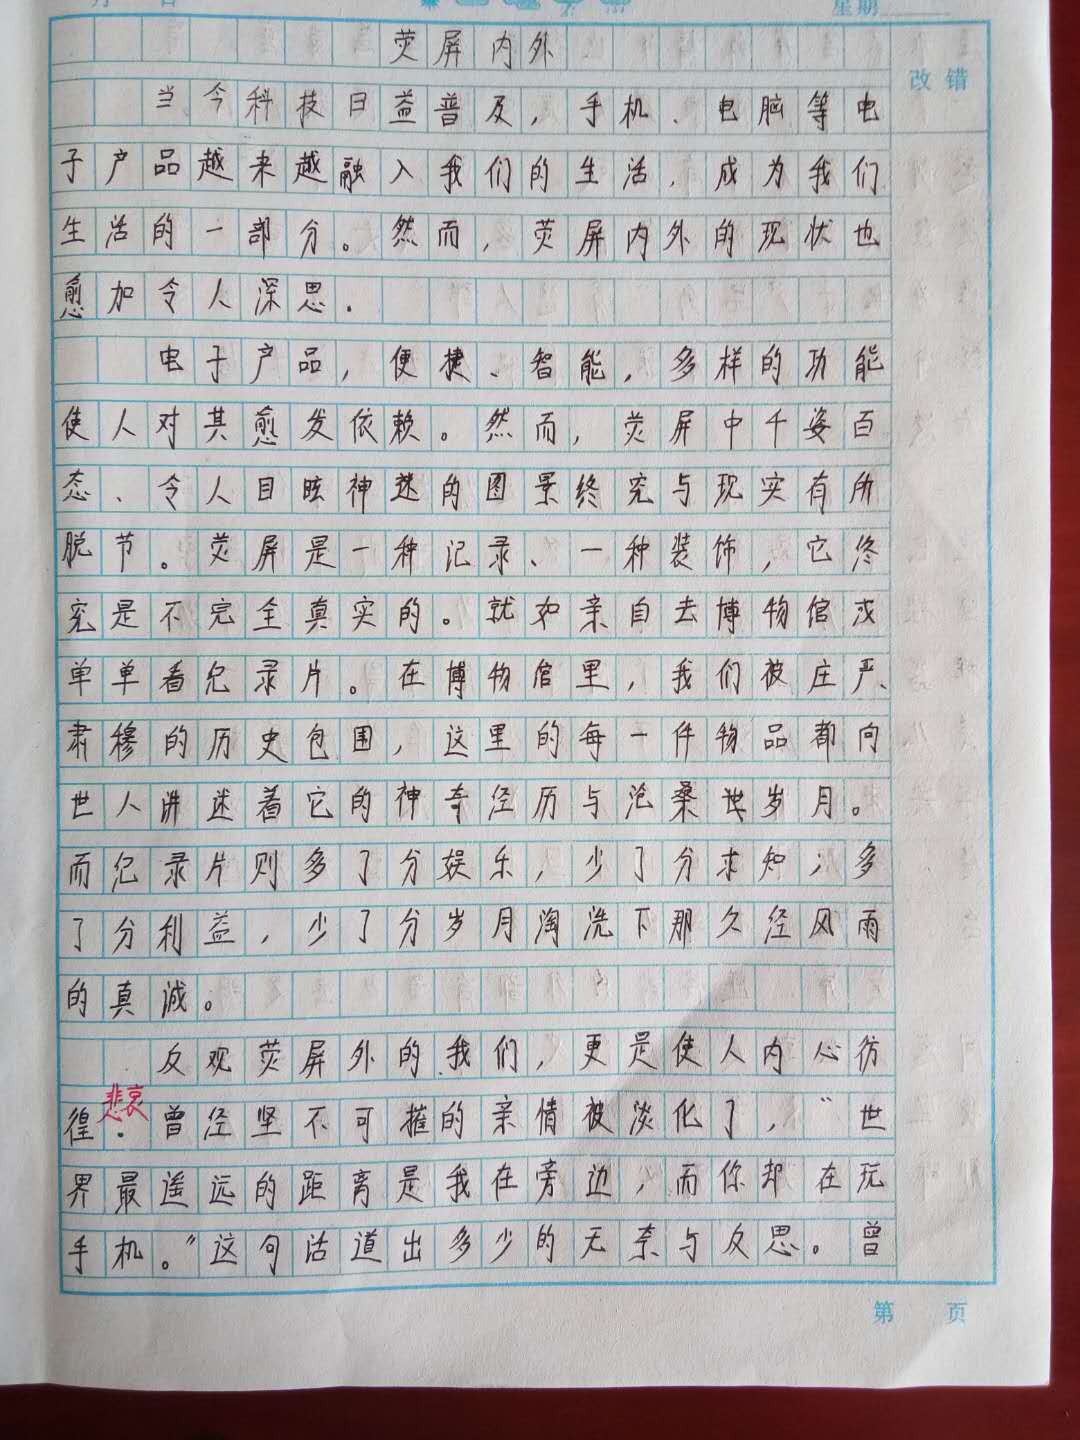 星期
荧屏内外
改错
当今科技日益普及，手机、电脑等电
子产品越来越融入我们的生活，成为我们
生活的一部分。然而，荧屏内外的现状也
愈加令人深思．
电子产品，便捷、智能，多样的功能
使人对其愈发依赖。然而，荧屏中千姿百
态、令人目眩神迷的图景终究与现实有所
脱节。荧屏是一种记录、一种装饰，它终
究是不完全真实的。就如亲自去博物馆或
单单看纪录片。在博物馆里，我们被庄严、
肃穆的历史包围，这里的每一件物品都向
世人讲述着它的神奇经历与沧桑岁月。
而纪录片则多了分娱乐，少了分求知；多
了分利益，少了分岁月淘洗下那久经风雨
的真诚。
反观荧屏外的我们，更是使人内心彷
悲哀
徨．曾经坚不可摧的亲情被淡化了，“世
界最遥远的距离是我在旁边，而你却在玩
手机。”这句话道出多少的无奈与反思。曾
第 页